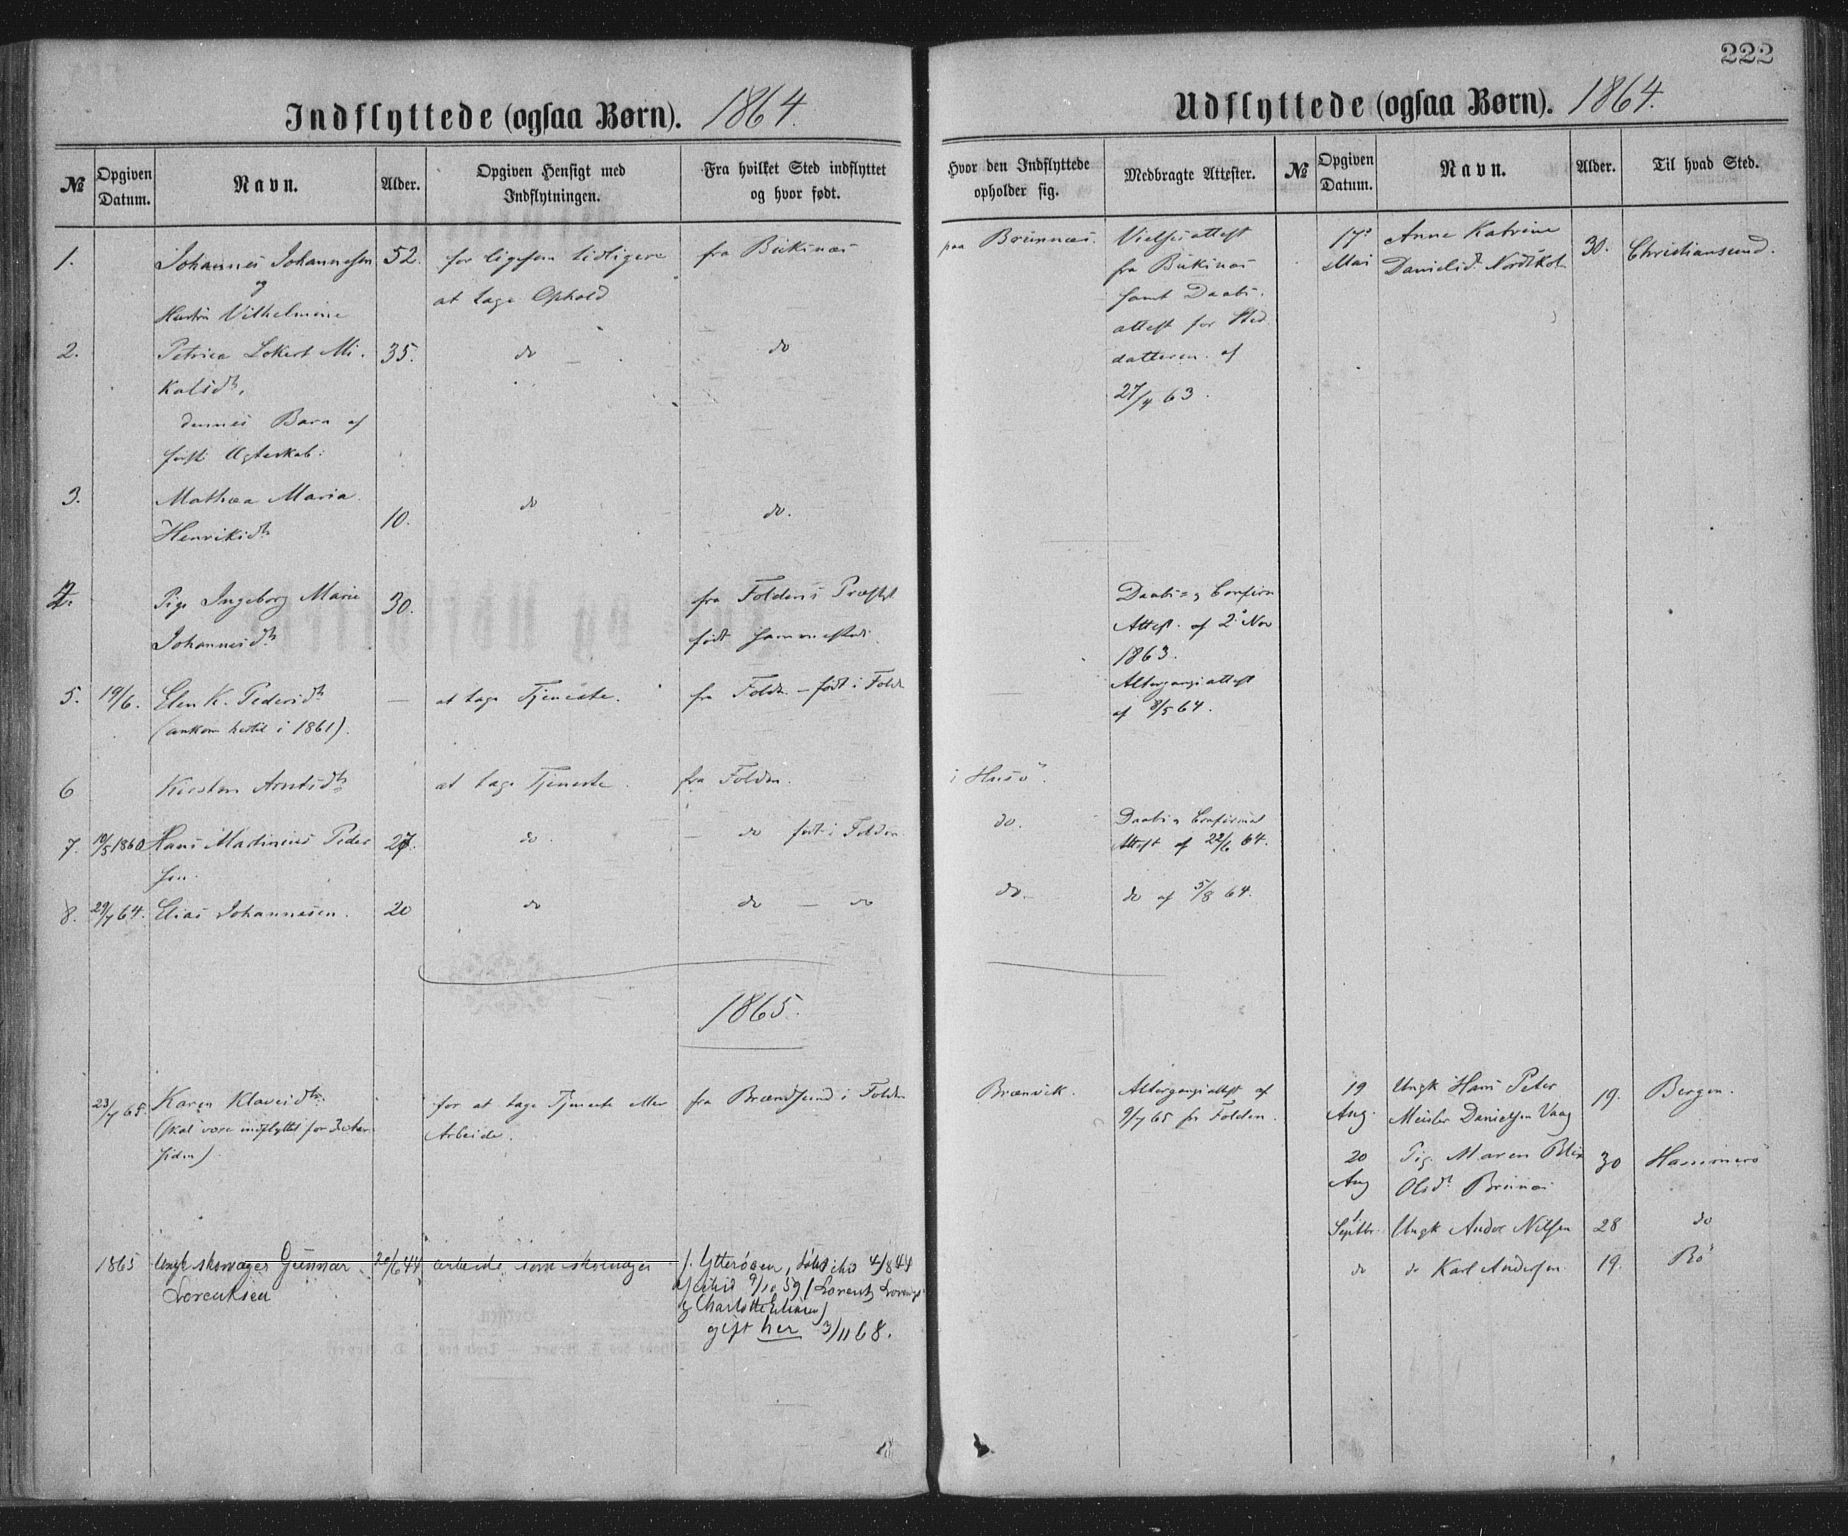 222
Indflyttede (ogsaa Børn). 1864.
№
Opgiven Datum.
Navn.
Alder.
Opgiven Hensigt med Indflytningen.
Fra hvilket Sted indflyttet og hvor født.
1. Johannes Johannesen 52. for ligesom tidligere fra
og at tage Ophold
Hustru Vilhelmine
2. Petrica Lokert Mi- 35. do do
kalsdt.
dennes Barn af
første Ægteskab:
3. Mathea Maria
Henriksdt 10. do do.
4. Pige Ingeborg Marie 30. fra Foldens Præstgt
Johannesdt født sammesteds
5. 19/6. Elen K. Pedersdt — at tage Tjeneste. fra Folden – født i Folden
(ankom hertil i 1861).
6 Kirsten Arntsdt at tage Tjeneste. fra Folden.
7. 19/5 1860 Hans Martinius Peder 27. do. — do født i Folden
sen.
8. 29/7 64. Elias Johannesen. 20 do do — do
1865.
23/7 65 Karen Klausdt. for at tage Tjeneste eller fra Brændsund i Folden
(skal være indflyttet for 3 Aar Arbeide.
siden)
1865 Ungk skomager Gunnar 20/6 44 arbeide som skomager f. Ytterøen, døbt ibid 4/8 44
Lorentsen cf ibid 9/10 59 (Lorentz
og Charlotte
gift her 3/11 68.
18
Udflyttede (ogsaa Børn). 1864.
Hvor den Indflyttede opholder sig.
Medbragte Attester.
№
Opgiven Datum.
Navn.
Alder.
Til hvad Sted.
paa Brunnæs. Vielsesattest
fra
samt Daabs-
attest for Sted
datteren af
27/4 63.
Daabs- og Confirm
Attest. af 2 Nov
1863.
Altergangsattest
af 8/5 64.
i Husø.
do. Daabs og Confirmat
Attest af 22/6 64.
do. do af 5/8 64.
Brænvik. Altergangsattest af
9/7 65 fra Folden.
17de Anne Katrine 30. Christiansund.
Mai Danielsdt
19 Ungk Hans Peter 19. Bergen.
Aug. Meisler Danielsen Vaag
20 Pig. Maren Blix 30 Hammerø
Aug Olsdt
1 Septbr. Ungk Andor Nilsen 28 do
do do Karl Andersen 19. Bø